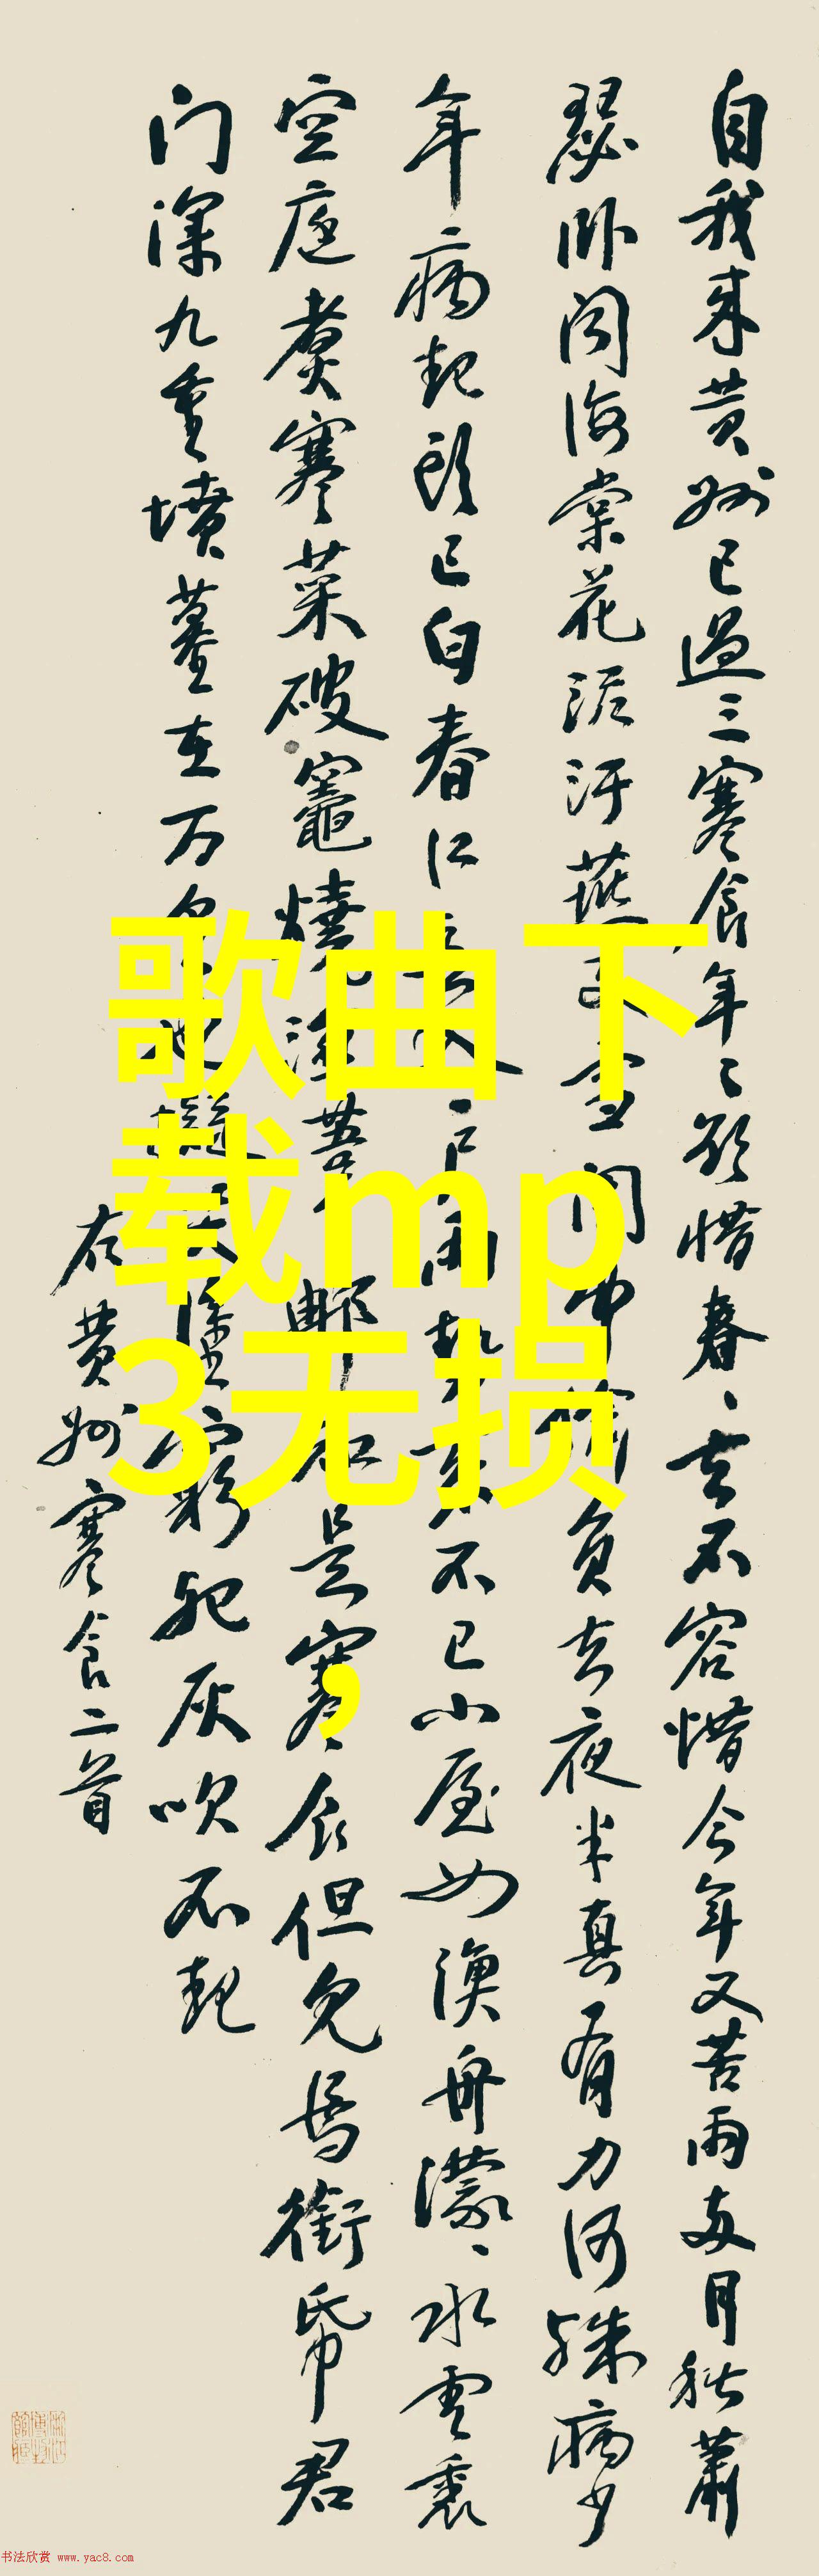 自我来黄州已過三寒食年〻欲惜春〻去不容惜今年又苦雨两月秋蕭
瑟卧闻海棠花泥污燕支雪闇中偷負去夜半真有力何殊病少
年病起頭已白春江入户雨势来不已小屋如漁舟濛〻水雲裏
空庖煮寒菜破竈燒濕葦那知是寒食但見烏銜帋君
门深九重墳墓在万里也擬哭塗窮死灰吹不起
右黄州寒食二首
歌曲下
载mp
3无损
,
书法欣赏 www.yac8.com